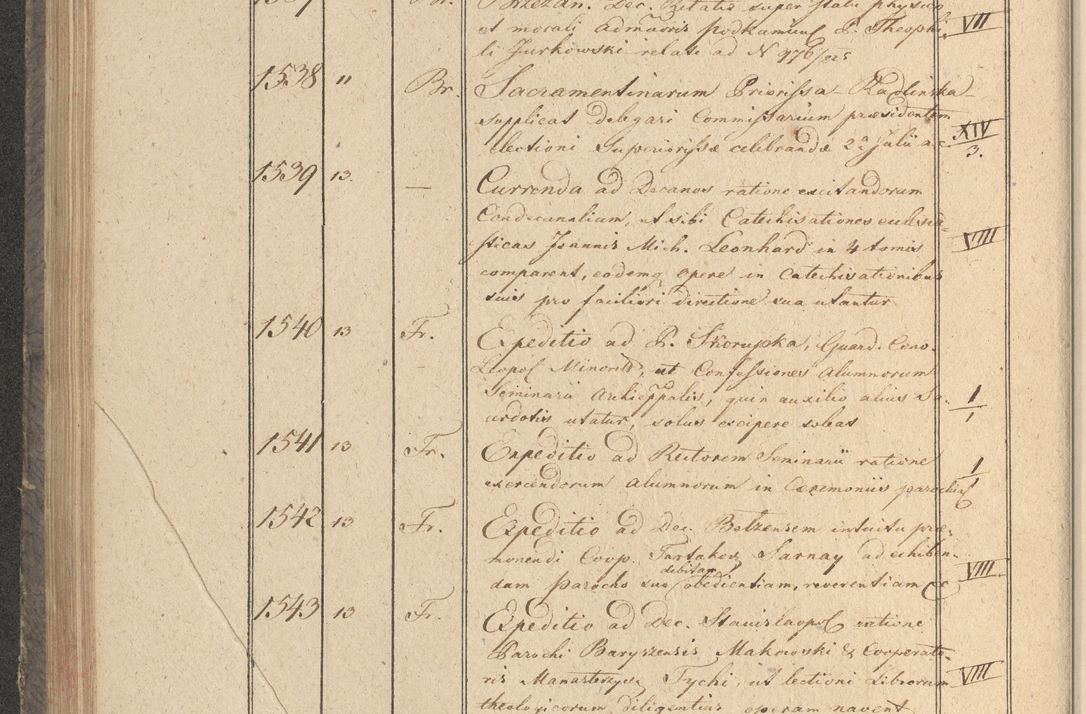 Brzezan. Dec. Relatio super statu physico
et morali administris Podkamien P. Theophi- VII
li Jurkowski relate ad N 976/825
1538 " Br. Sacramentinarum Priorissa Radlinska
supplicat delegari Commissarium præsidentem
electioni Superiorissæ celebrandæ 2a Julii a.c. XIV/3.
1539 13. — Currenda ad Decanos ratione excitandorum
Condecanalium, ut sibi Catechisationes ecclesia-
sticas Joannis Mich. Leonhard in 4 tomis VIII
comparent, eodemq opere in Catechisationibus
suis pro faciliori directione sua utantur
1540 13 Fr. Expeditio ad P. Skorupka, Guard. Cono-
Leopol Minorit, ut Confessiones Alumnorum
Seminarii Archieppalis, quin auxilio alius Sa- 1/1
cerdotis utatur, solus excipere soleat
1541 13 Fr. Expeditio ad Rectorem Seminarii ratione
exercendorum Alumnorum in Cæremoniis parochial 1
1542 13 Fr. Expeditio ad Dec. Belzensem intuitu præ-
monendi Coop. Tartakov Sarnay ad exhiben-
dam parocho suo debitam obedientiam, reverentiam &c VIII
1543 13 Fr. Expeditio ad Dec. Stanislaopol ratione
Parochi Baryszensis Makowski & Cooperato-
ris Manasterzysc Tychi, ut lectioni Librorum VIII
theologicorum diligentius operam navent